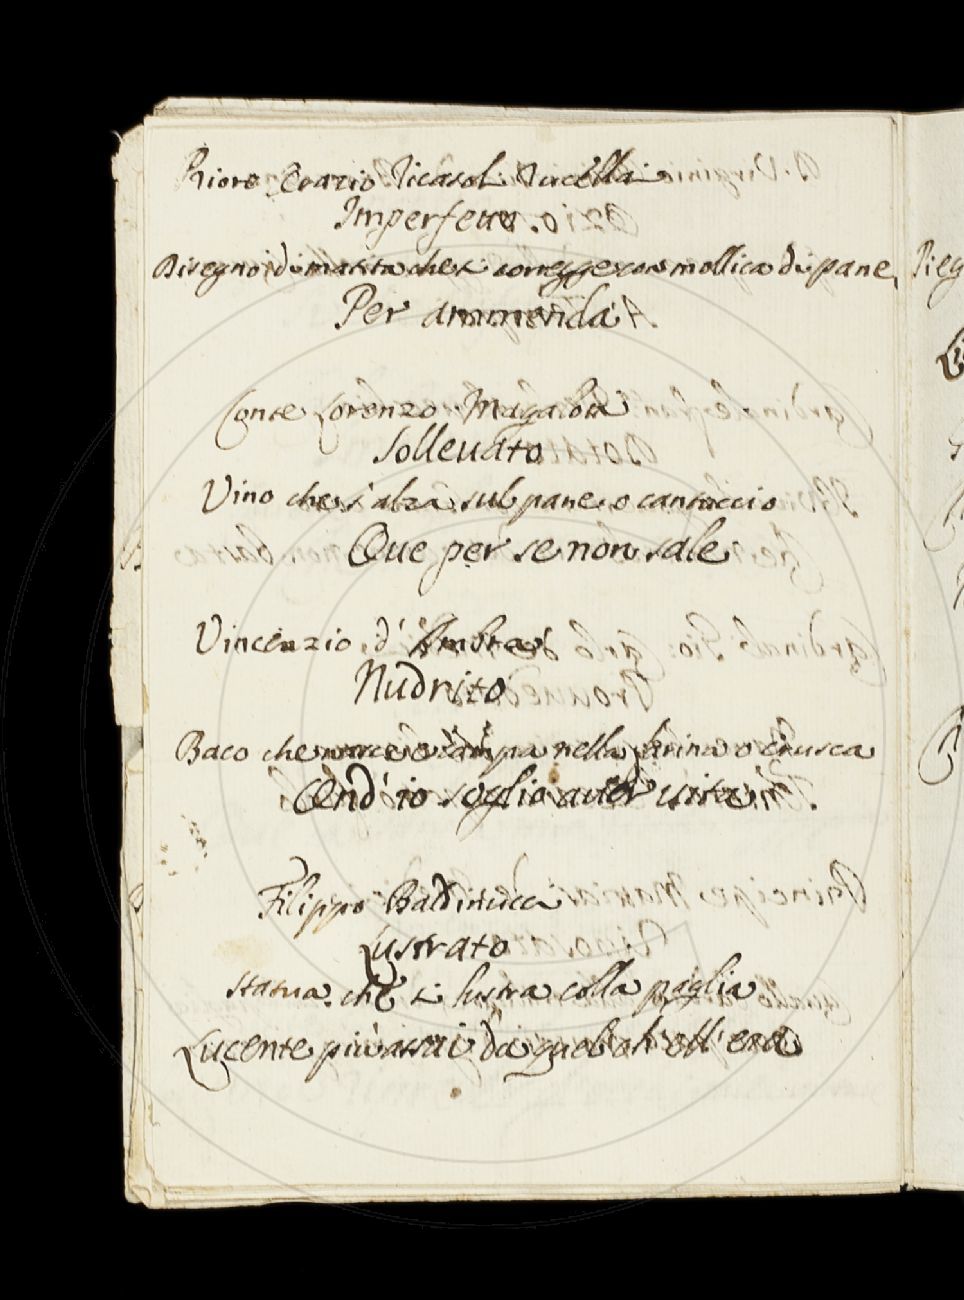 Priore Orazio Ricasoli Rucellai
Imperfetto.
Disegno di matita che si corregge con mollica di pane
Per ammenda
Conte Lorenzo Magalotti
Sollevato
Vino che s'alza sul pane o cantuccio
Que per se non sale
Vincenzio d'Ambra
Nudrito
Baco che nasce e campa nella farina o crusca
Ond'io soglio aver vita
Filippo Baldinucci
Lustrato
Statua che si lustra colla paglia
Lucente più assai di quel ch'ell'era